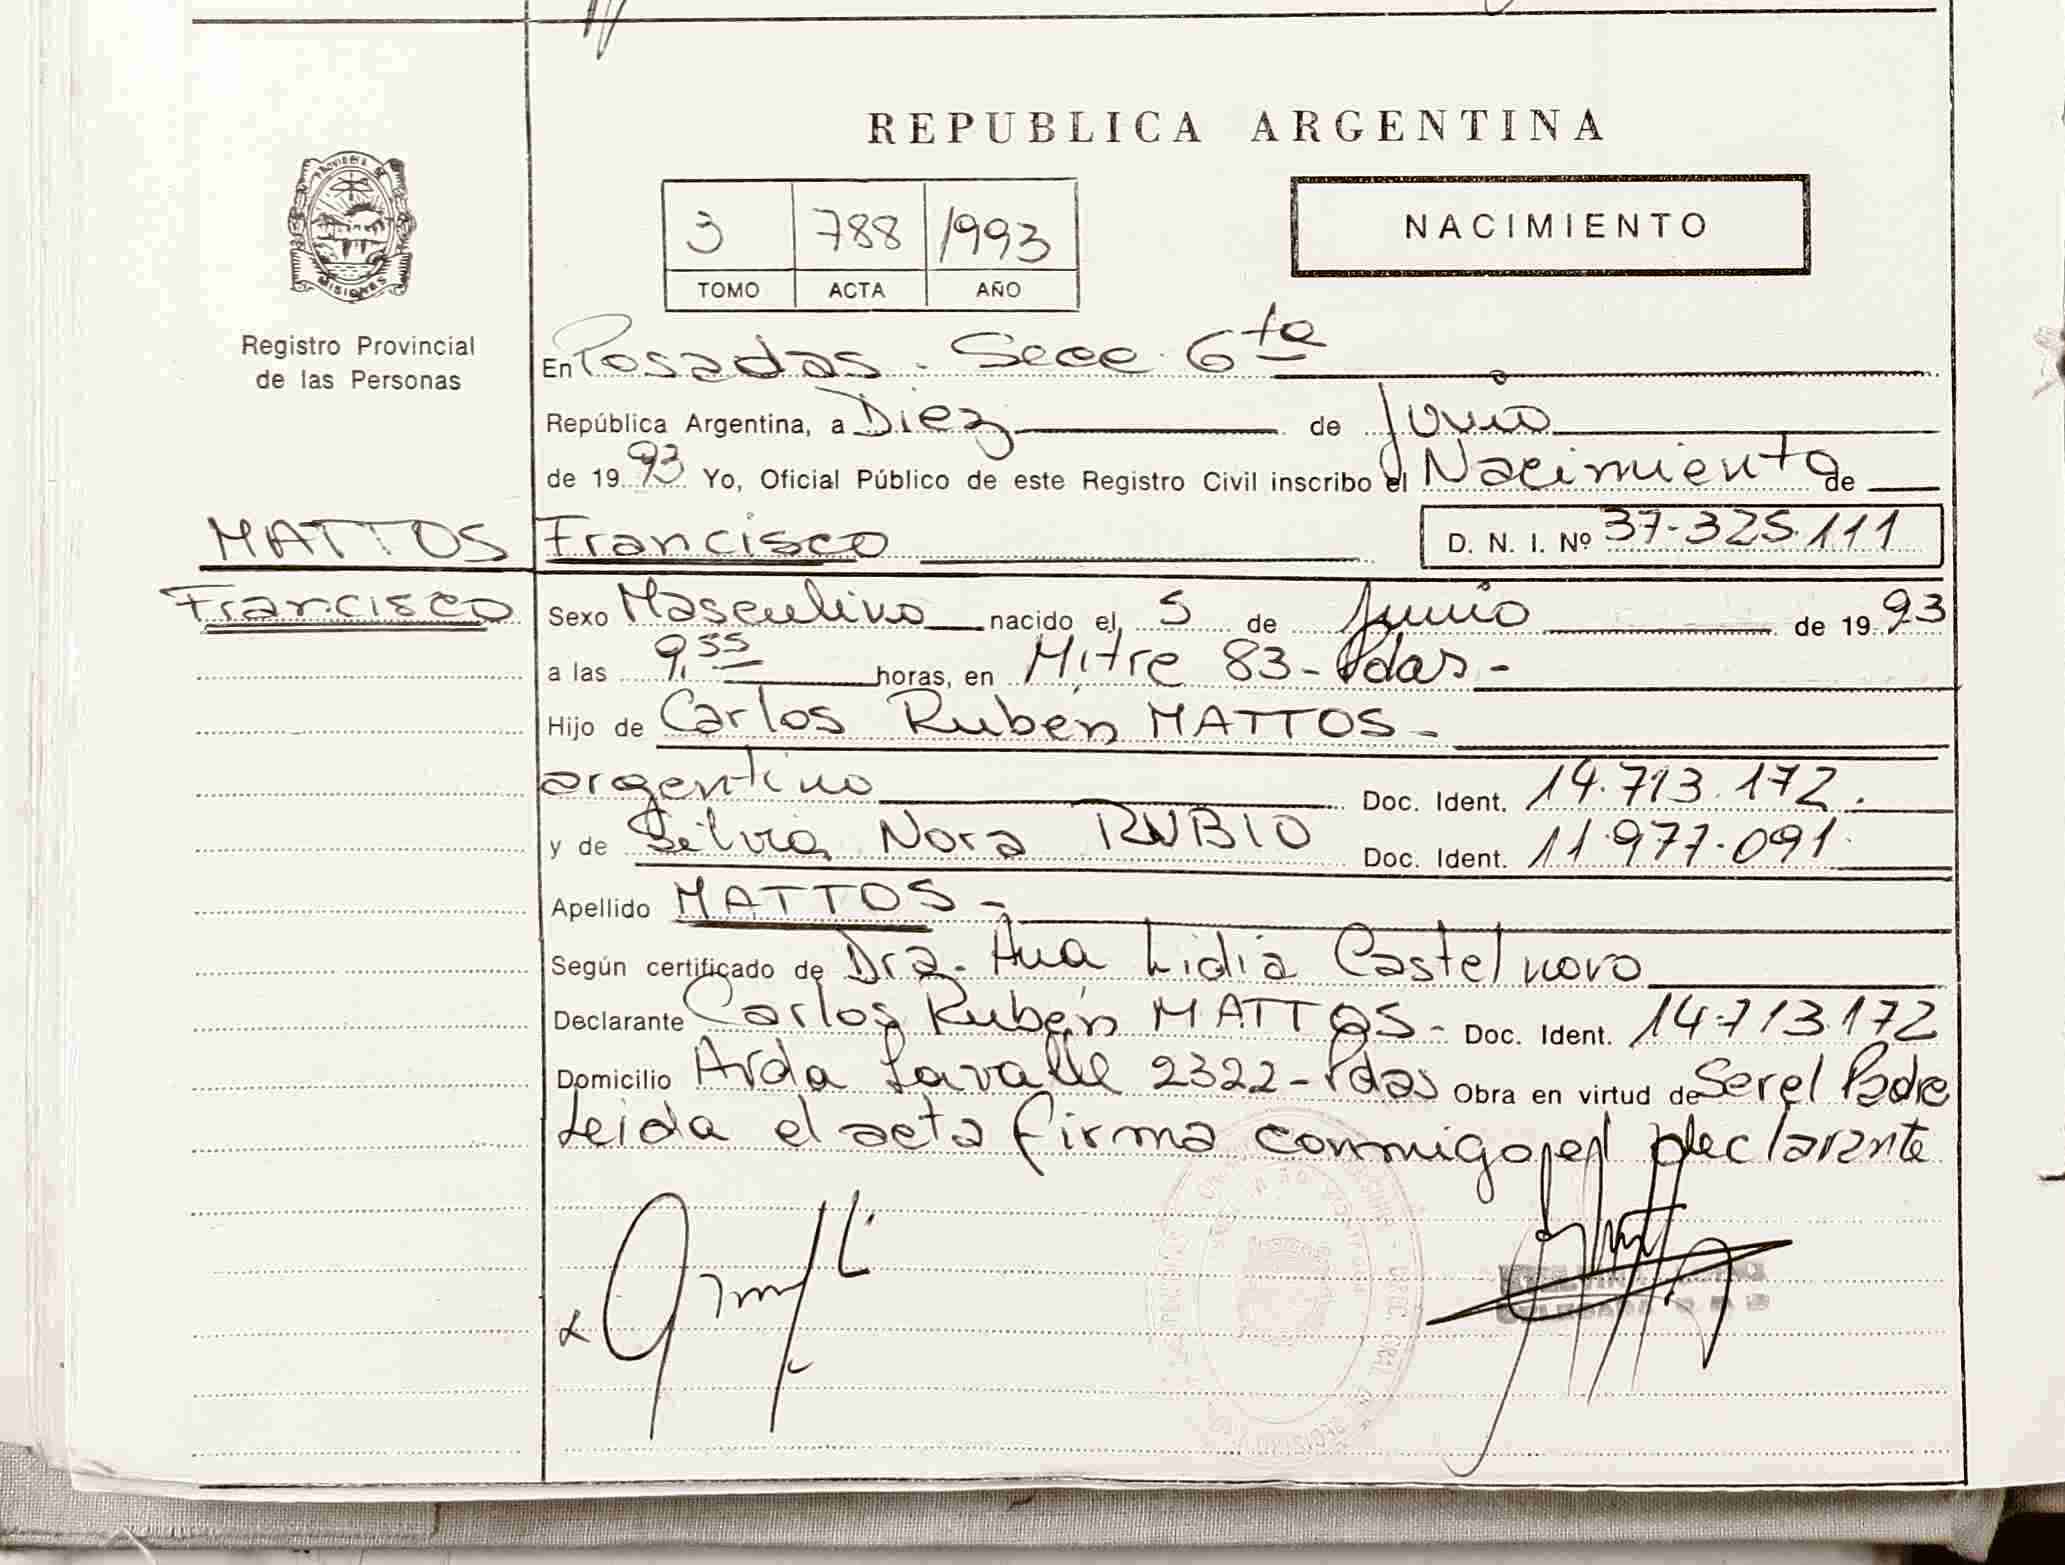 REPUBLICA ARGENTINA
PROVINCIA DE
MISIONES
Registro Provincial
de las Personas
3 788 1993
TOMO ACTA AÑO
NACIMIENTO
En Posadas. Secc. 6ta
República Argentina, a Diez de Junio
de 1993 Yo, Oficial Público de este Registro Civil inscribo el Nacimiento de
MATTOS Francisco D. N. I. Nº 37.325.111
Francisco Sexo Masculino nacido el 5 de Junio de 1993
a las 9,55 horas, en Mitre 83 - Pdas -
Hijo de Carlos Rubén MATTOS -
argentino Doc. Ident. 14.713.172.
y de Silvia Nora RUBIO Doc. Ident. 11.977.091.
Apellido MATTOS -
Según certificado de Dra. Ana Lidia Castelnovo
Declarante Carlos Rubén MATTOS - Doc. Ident. 14.713.172
Domicilio Avda Lavalle 2322 - Pdas Obra en virtud de Ser el Padre
Leida el acta firma conmigo el declarante